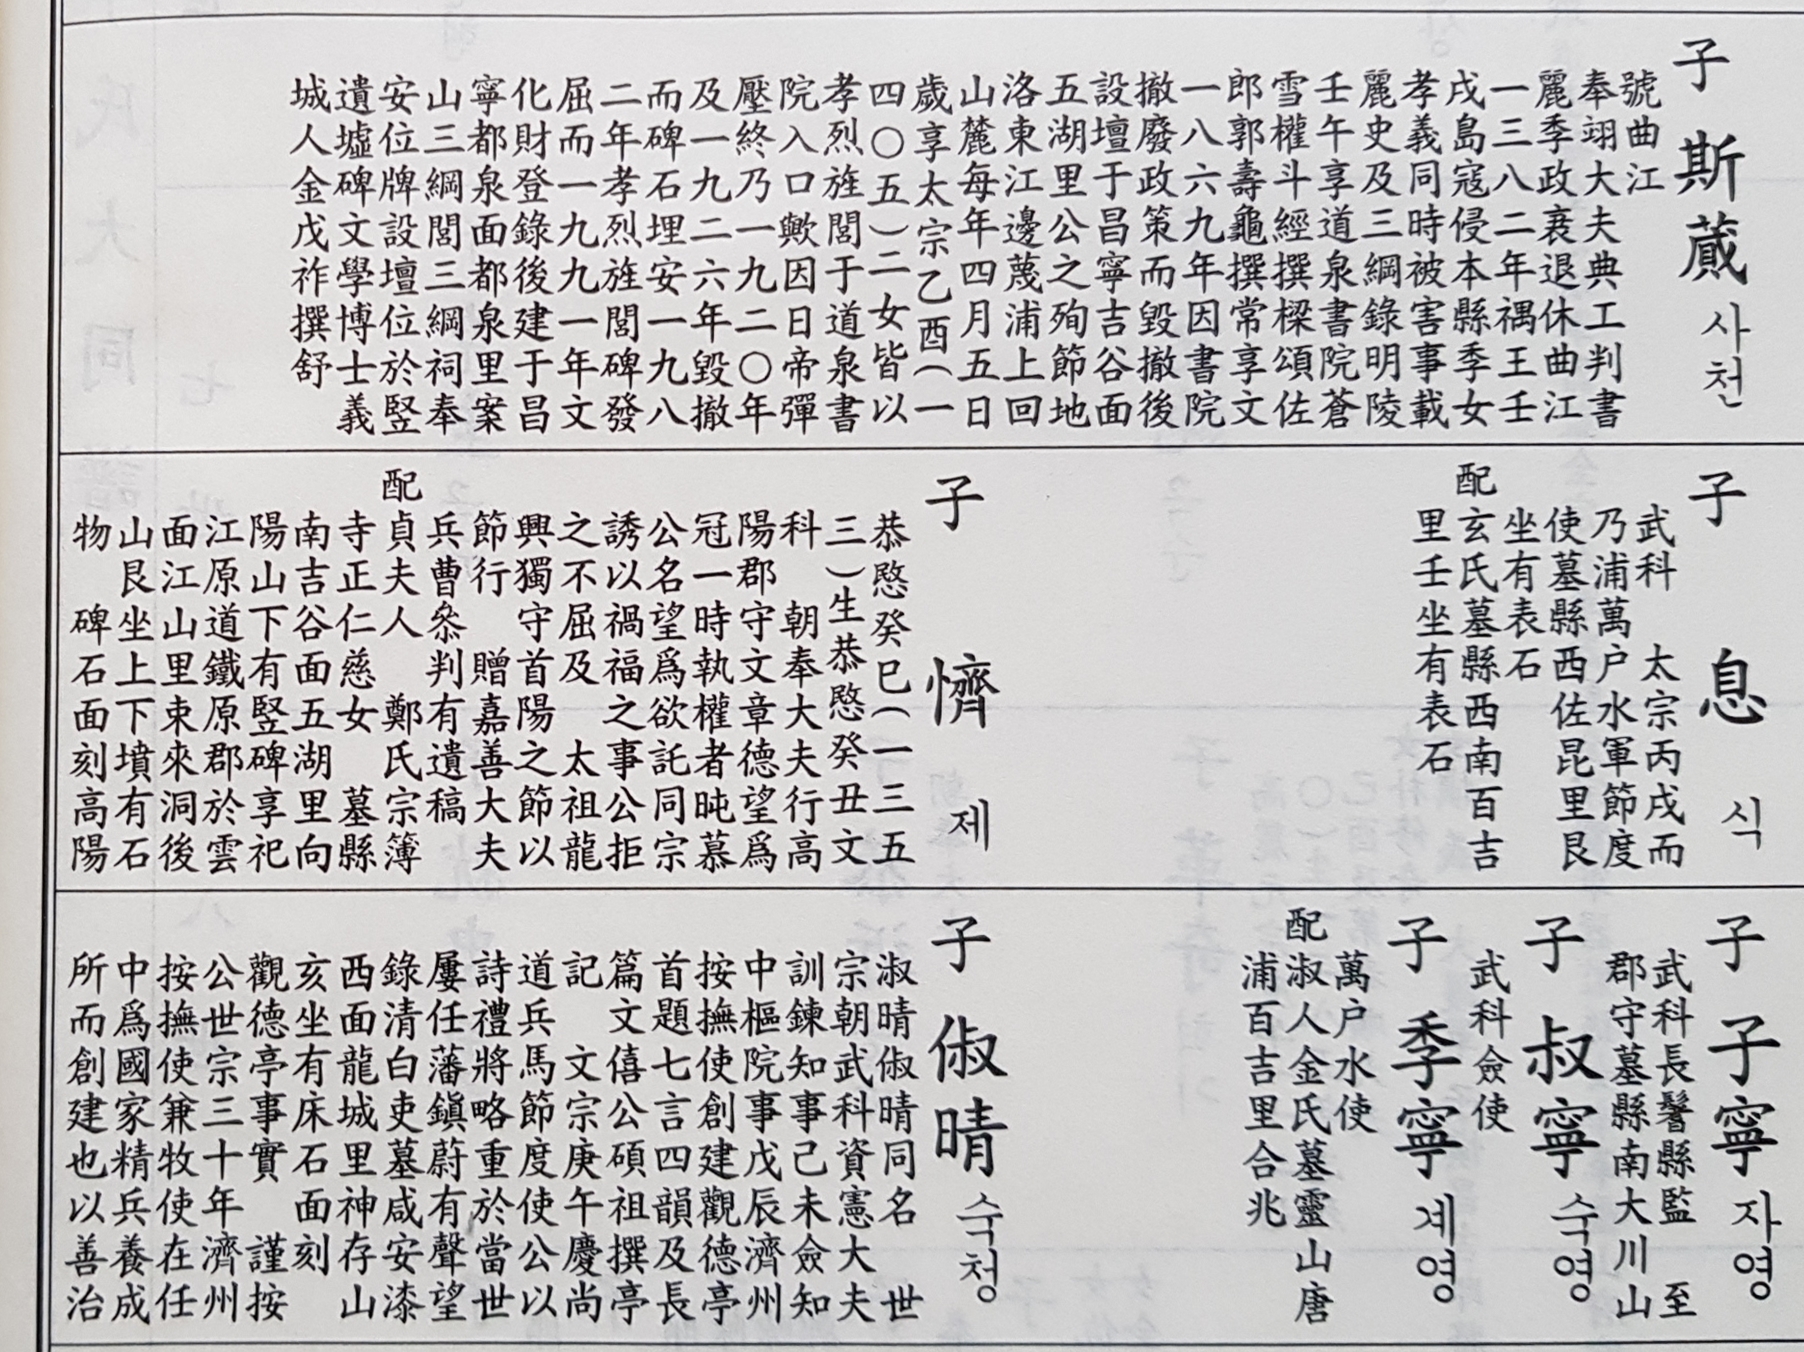 子 斯蕆 사천
號曲江
奉翊大夫典工判書
麗季政衰退休曲江
一三八二年禑王壬
戌島寇侵本縣季女
孝義同時被害事載
麗史及三綱錄明陵
壬午享道泉書院蒼
雪權斗經撰樑頌佐
郎郭壽龜撰常享文
一八六九年因書院
撤廢政策而毀撤後
設壇于昌寧吉谷面
五湖里公之殉節地
洛東江邊蔑浦上回
山麓每年四月五日
歲享太宗乙酉(一
四〇五)二女皆以
孝烈旌閭于道泉書
院入口歟因日帝彈
壓終乃一九二〇年
及一九二六年毀撤
而碑石埋安一九八
二年孝烈旌閭碑發
屈而一九九一年文
化財登錄後建于昌
寧都泉面都泉里案
山三綱閭三綱祠奉
安位牌設壇位於竪
遺墟碑文學博士義
城人金戊祚撰舒
子 息 식
武科 太宗丙戌而
乃浦萬户水軍節度
使墓縣西佐昆里艮
坐有表石
配玄氏墓縣西南百吉
里壬坐有表石
子 懠 제
恭愍癸巳(一三五
三)生恭愍癸丑文
科 朝奉大夫行高
陽郡守文章德望爲
冠一時執權者盹慕
公名望爲欲託同宗
誘以禍福之事公拒
之不屈及 太祖龍
興獨守首陽之節以
節行 贈嘉善大夫
兵曹叅判有遺稿
配貞夫人 鄭氏宗簿
寺正仁慈女 墓縣
南吉谷面五湖里向
陽山下有竪碑享祀
江原道鐵原郡於雲
面江山里東來洞後
山艮坐上下墳有石
物 碑石面刻高陽
子 子寧 자영
武科長鬐縣監 至
郡守墓縣南大川山
子 叔寧 숙영
武科僉使
子 季寧 계영
萬户水使
配淑人金氏墓靈山唐
浦百吉里合兆
子 俶晴 숙청
淑晴俶晴同名 世
宗朝武科資憲大夫
訓鍊知事己未僉知
中樞院事戊辰濟州
按撫使創建觀德亭
首題七言四韻及長
篇文僖公碩祖撰亭
記 文宗庚午慶尚
道兵馬節度使公以
詩禮將略重於當世
屢任藩鎭蔚有聲望
錄清白吏墓咸安漆
西面龍城里神存山
亥坐有床石面刻
觀德亭事實 謹按
公世宗三十年濟州
按撫使兼牧使在任
中爲國家精兵養成
所而創建也以善治